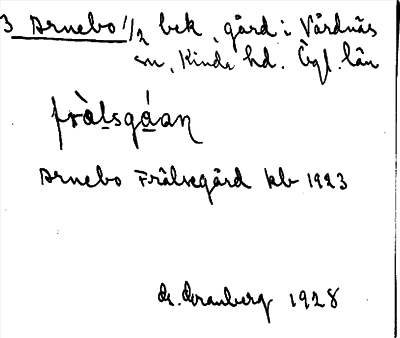 3 Arnebo 1/2 bek, gård i Vårdnäs
sn, Kinda hd. Ögl. län
frälsgáan
Arnebo Frälsegård kb 1923
G. Granberg 1928